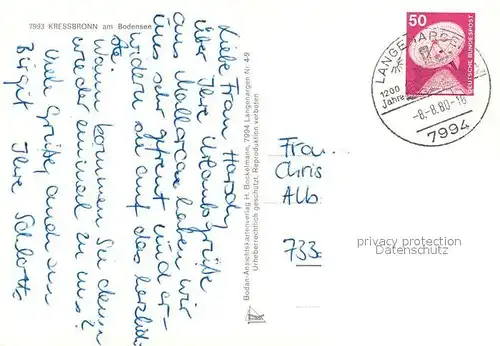 7993 KRESSBRONN am Bodensee
Liebe Frau Harsch,
über Ihre Urlaubsgrüße
aus Mallorca haben wir
uns sehr gefreut und er-
widern sie auf das herzlich-
ste.
Wann kommen Sie denn
wieder einmal zu uns?
Viele Grüße auch an
Birgit Ihre
Bodan-Ansichtskartenverlag H. Bockelmann, 7994 Langenargen Nr. 4-9
Urheberrechtlich geschützt. Reproduktion verboten
50
DEUTSCHE BUNDESPOST
LANGENARGEN
1200
Jahre
-8.-8.80-18
7994
Frau
Chris
Alb
733
privacy protection
Datenschutz